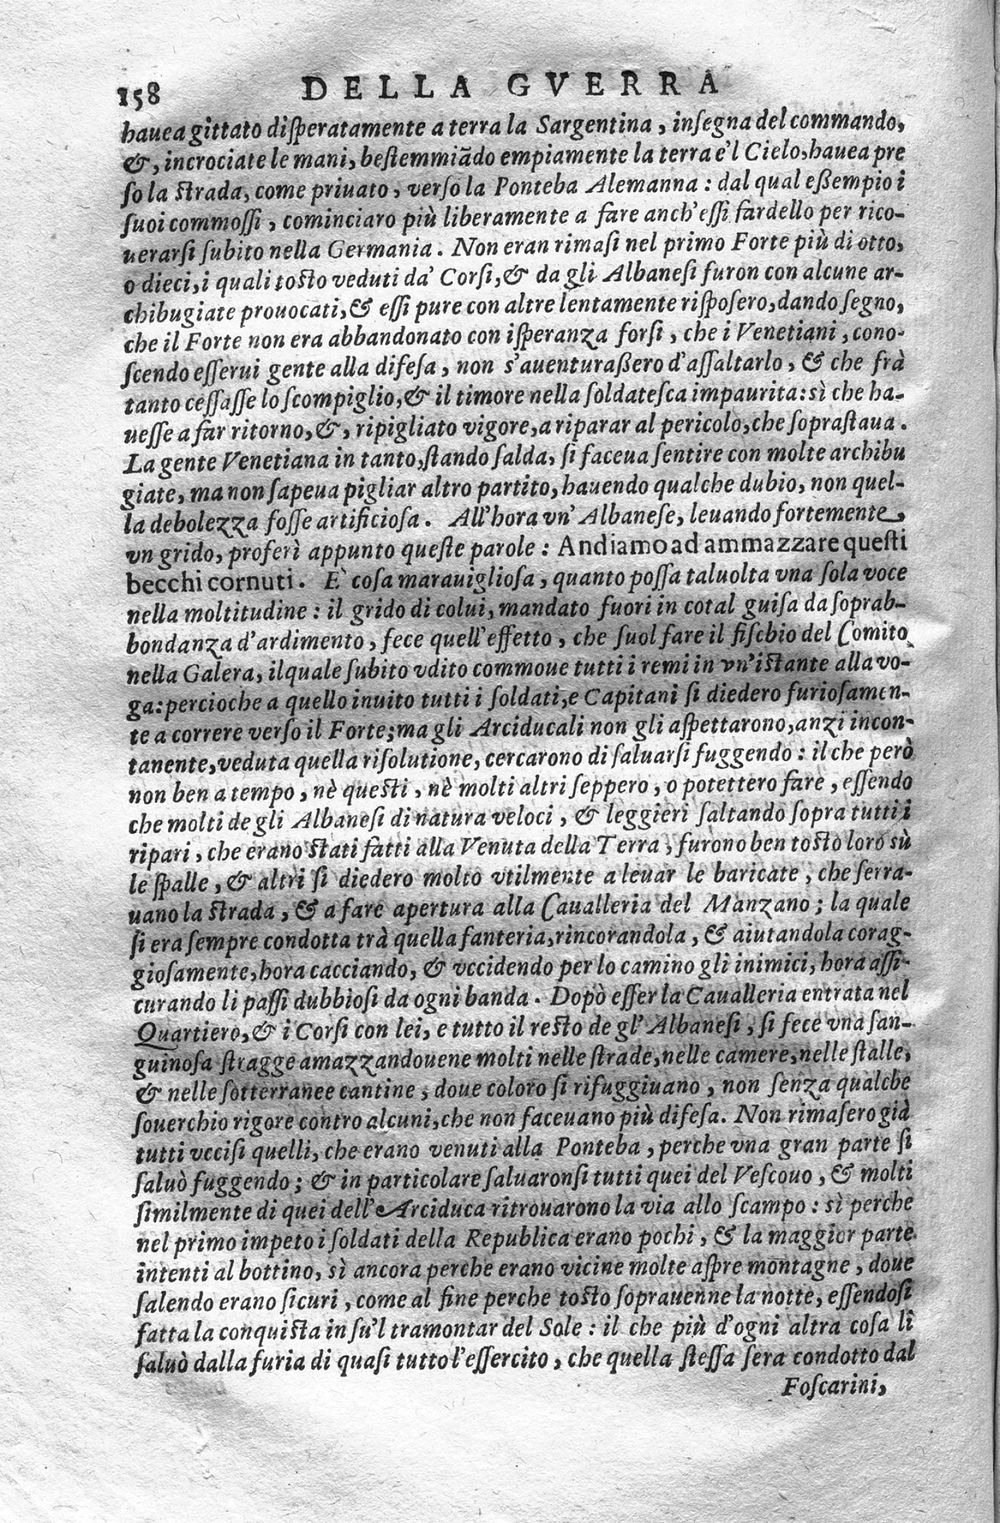 158 DELLA GVERRA
hauea gittato disperatamente a terra la Sargentina, insegna del commando,
&, incrociate le mani, bestemmiādo empiamente la terra e'l Cielo, hauea pre
so la strada, come priuato, verso la Ponteba Alemanna: dal qual eßempio i
suoi commossi, cominciaro più liberamente a fare anch'essi fardello per rico-
uerarsi subito nella Germania. Non eran rimasi nel primo Forte più di otto,
o dieci, i quali tosto veduti da' Corsi, & da gli Albanesi furon con alcune ar-
chibugiate prouocati, & essi pure con altre lentamente risposero, dando segno,
che il Forte non era abbandonato con isperanza forsi, che i Venetiani, cono-
scendo esserui gente alla difesa, non s'auenturaßero d'assaltarlo, & che frà
tanto cessasse lo scompiglio, & il timore nella soldatesca impaurita: sì che ha-
uesse a far ritorno, &, ripigliato vigore, a riparar al pericolo, che soprastaua.
La gente Venetiana in tanto, stando salda, si faceua sentire con molte archibu
giate, ma non sapeua pigliar altro partito, hauendo qualche dubio, non quel-
la debolezza fosse artificiosa. All'hora vn' Albanese, leuando fortemente
vn grido, proferì appunto queste parole: Andiamo ad ammazzare questi
becchi cornuti. E' cosa marauigliosa, quanto possa taluolta vna sola voce
nella moltitudine: il grido di colui, mandato fuori in cotal guisa da soprab-
bondanza d'ardimento, fece quell'effetto, che suol fare il fischio del Comito
nella Galera, il quale subito vdito commoue tutti i remi in vn'istante alla vo-
ga: percioche a quello inuito tutti i soldati, e Capitani si diedero furiosamen-
te a correre verso il Forte; ma gli Arciducali non gli aspettarono, anzi incon-
tanente, veduta quella risolutione, cercarono di saluarsi fuggendo: il che però
non ben a tempo, nè questi, nè molti altri seppero, o potettero fare, essendo
che molti de gli Albanesi di natura veloci, & leggieri saltando sopra tutti i
ripari, che erano stati fatti alla Venuta della Terra, furono ben tosto loro sù
le spalle, & altri si diedero molto vtilmente a leuar le baricate, che serra-
uano la strada, & a fare apertura alla Caualleria del Manzano; la quale
si era sempre condotta trà quella fanteria, rincorandola, & aiutandola corag-
giosamente, hora cacciando, & vccidendo per lo camino gli inimici, hora assi-
curando li passi dubbiosi da ogni banda. Dopò esser la Caualleria entrata nel
Quartiero, & i Corsi con lei, e tutto il resto de gl'Albanesi, si fece vna san-
guinosa stragge amazzandouene molti nelle strade, nelle camere, nelle stalle,
& nelle sotterranee cantine, doue coloro si rifuggiuano, non senza qualche
souerchio rigore contro alcuni, che non faceuano più difesa. Non rimasero già
tutti vccisi quelli, che erano venuti alla Ponteba, perche vna gran parte si
saluò fuggendo; & in particolare saluaronsi tutti quei del Vescouo, & molti
similmente di quei dell'Arciduca ritrouarono la via allo scampo: sì perche
nel primo impeto i soldati della Republica erano pochi, & la maggior parte
intenti al bottino, sì ancora perche erano vicine molte aspre montagne, doue
salendo erano sicuri, come al fine perche tosto soprauenne la notte, essendosi
fatta la conquista in su'l tramontar del Sole: il che più d'ogni altra cosa li
saluò dalla furia di quasi tutto l'essercito, che quella stessa sera condotto dal
Foscarini,